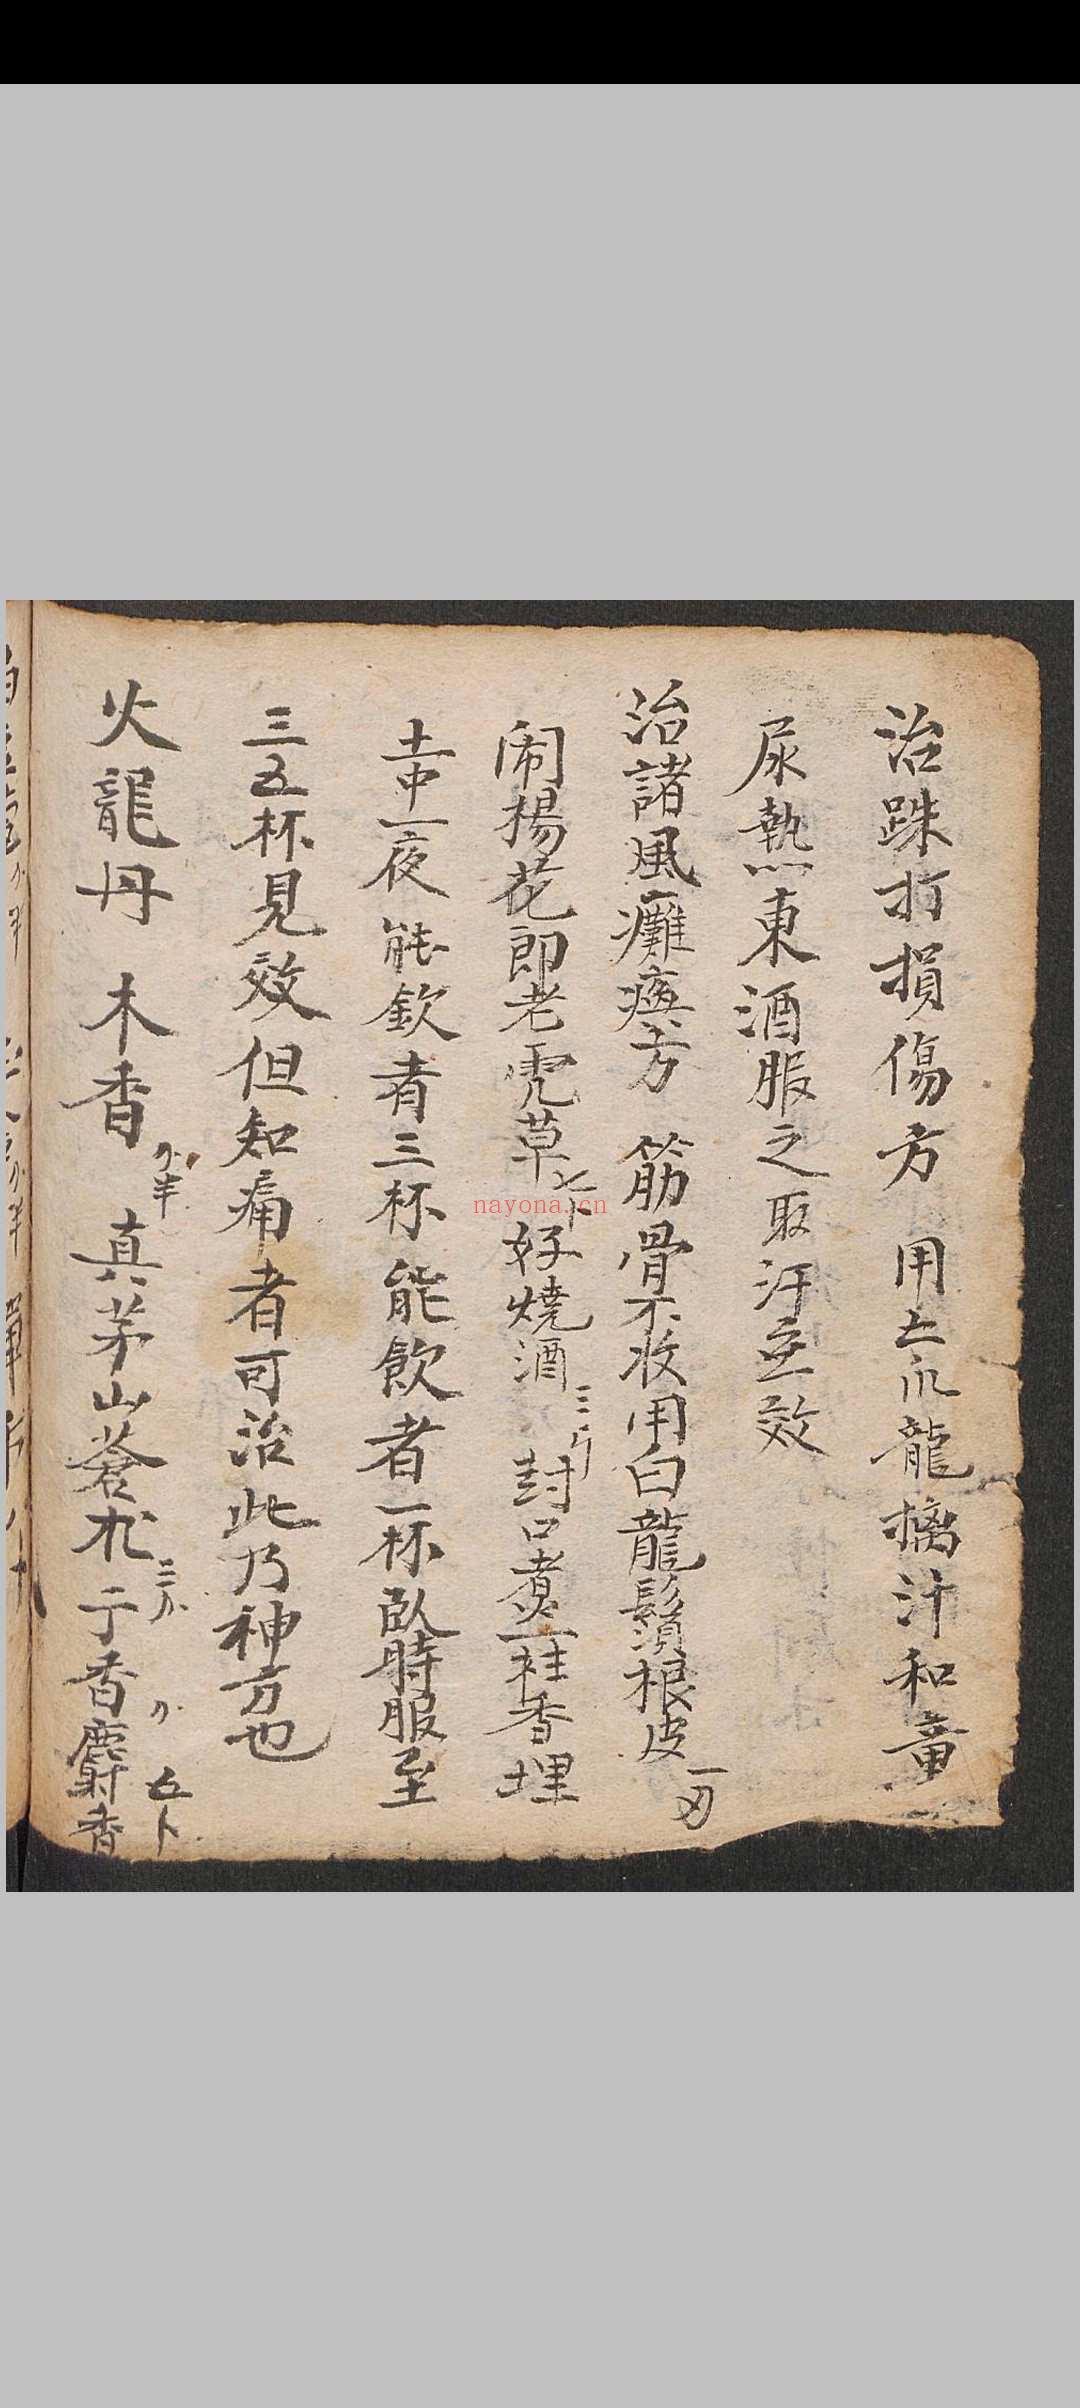 治跌打損傷方 用土爪龍擣汁和童
尿熱東酒服之取汗立效
治諸風癱瘓方 筋骨不收用白龍鬚根皮一刄
闹楊花即老虎草七卜好燒酒三斤封口煮一炷香埋
土中一夜能飲者三杯能飲者一杯臥時服至
三五杯見效但知痛者可治此乃神方也
火龍丹 木香半 真茅山蒼朮三 丁香 麝香五卜
nayona.cn